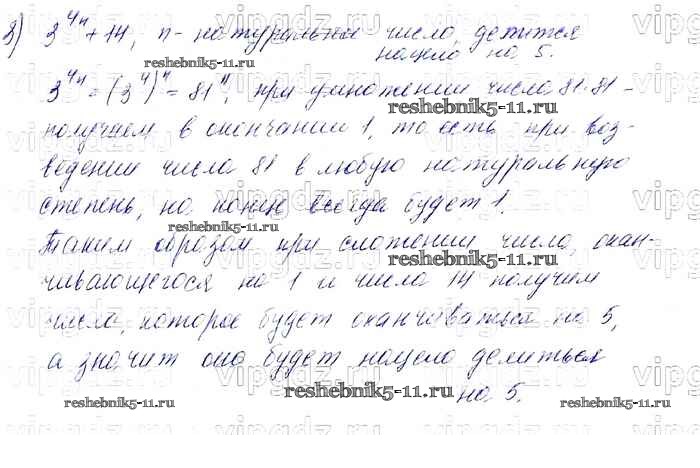 3) 3⁴ⁿ + 14, n - натуральное число, делится
нацело на 5.
3⁴ⁿ = (3⁴)ⁿ = 81ⁿ, при умножении числа 81·81 -
reshebnik5-11.ru
получаем в окончании 1, то есть при воз-
ведении числа 81 в любую натуральную
степень, на конце всегда будет 1.
reshebnik5-11.ru
Таким образом при сложении числа, окан-
reshebnik5-11.ru
чивающегося на 1 и числа 14 получим
число, которое будет оканчиваться на 5,
а значит оно будет нацело делиться
reshebnik5-11.ru
на 5.
reshebnik5-11.ru reshebnik5-11.ru